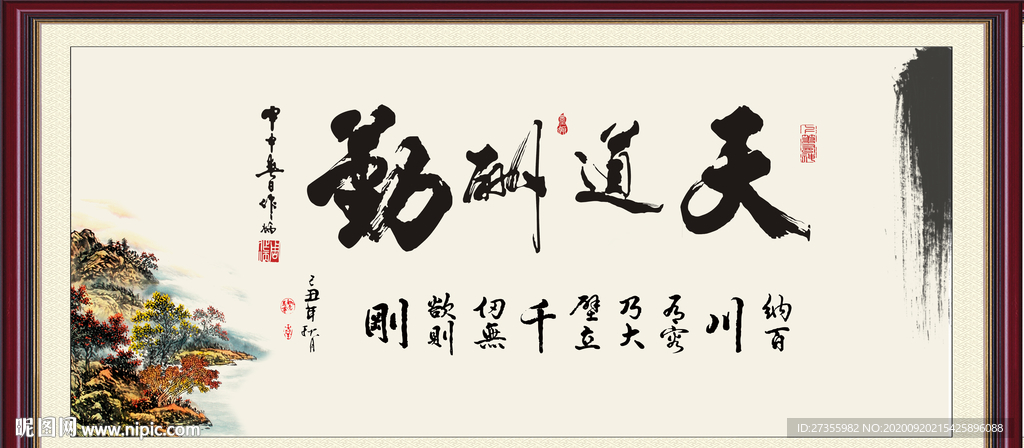 天道酬勤
納百川有容乃大壁立千仞無欲則剛
己丑年秋月
昵图网 www.nipic.com
ID:27355982 NO:20200920215425896088